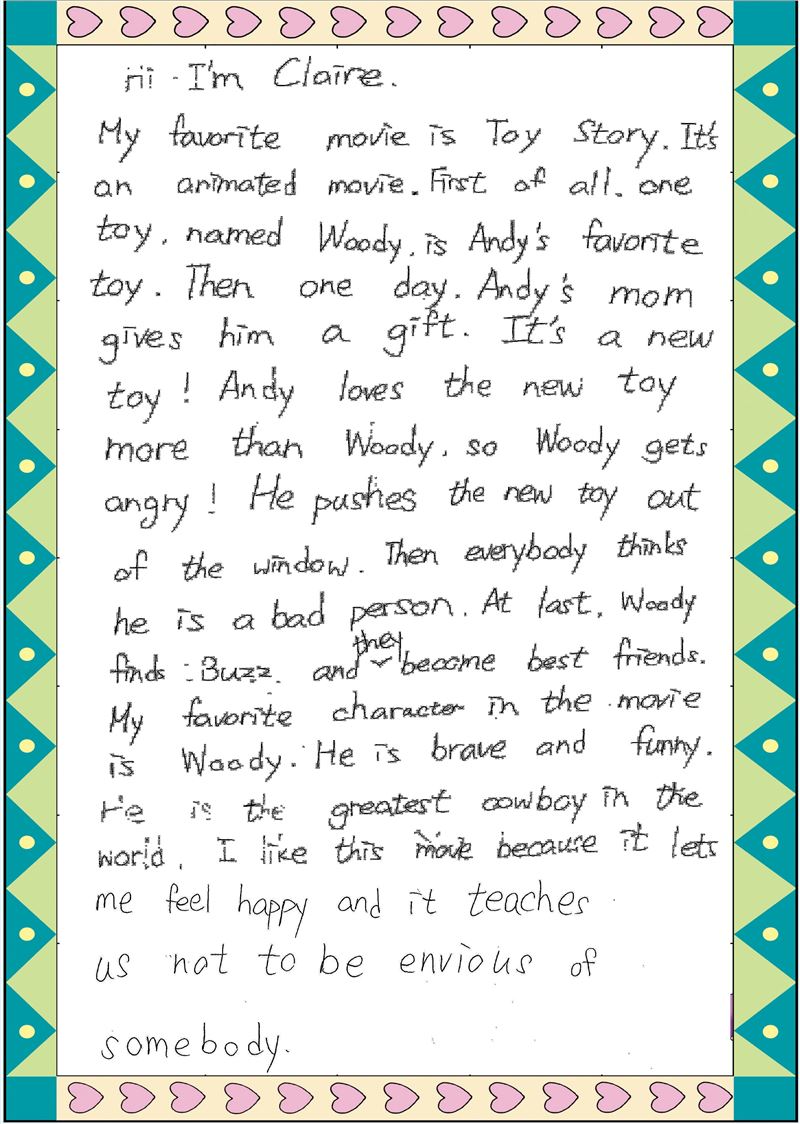 Hi I'm Claire.
My favorite movie is Toy Story. It's
an animated movie. First of all, one
toy, named Woody, is Andy's favorite
toy. Then one day, Andy's mom
gives him a gift. It's a new
toy! Andy loves the new toy
more than Woody, so Woody gets
angry! He pushes the new toy out
of the window. Then everybody thinks
he is a bad person. At last, Woody
finds Buzz, and they become best friends.
My favorite character in the movie
is Woody. He is brave and funny.
He is the greatest cowboy in the
world. I like this movie because it lets
me feel happy and it teaches
us not to be envious of
somebody.